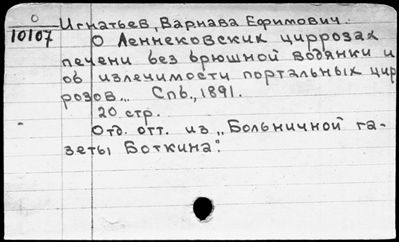 0
10107
Игнатьев, Варнава Ефимович.
О Леннековских циррозах
печени без брюшной водянки и
об излечимости портальных цир
розов... Спб., 1891.
20 стр.
Отд. отт. из „Больничной га-
зеты Боткина".